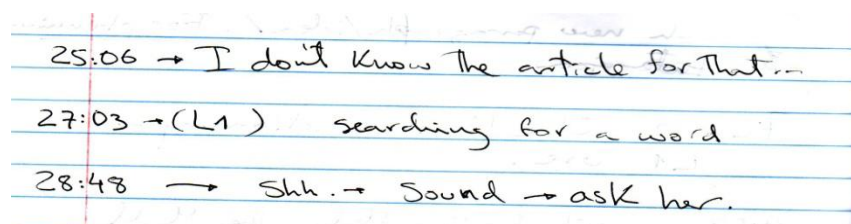 25:06 → I don't know the article for that...
27:03 → (L1) searching for a word
28:48 → Shh. → Sound → ask her.